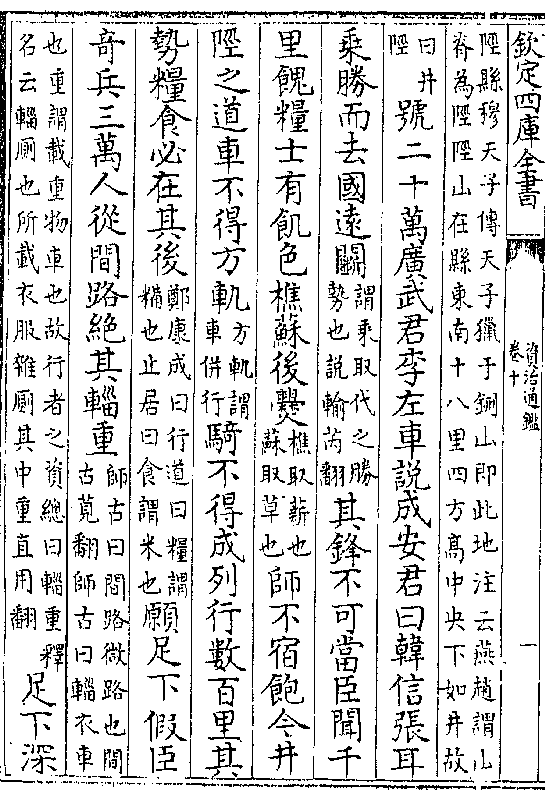 欽定四庫全書
資治通鑑
卷十
一
陘縣穆天子傳天子獵于鉶山即此地注云燕趙謂山
脊為陘陘山在縣東南十八里四方髙中央下如井故
曰井
陘
號二十萬廣武君李左車說成安君曰韓信張耳
乘勝而去國逺鬭
謂乘取代之勝
勢也説輸芮翻
其鋒不可當臣聞千
里餽糧士有飢色樵蘇後爨
樵取薪也
蘇取草也
師不宿飽今井
陘之道車不得方軌
方軌謂
車併行
騎不得成列行數百里其
勢糧食必在其後
鄭康成曰行道曰糧謂
糒也止居曰食謂米也
願足下假臣
奇兵三萬人從間路絶其輜重
師古曰間路微路也間
古莧翻師古曰輜衣車
也重謂載重物車也故行者之資總曰輜重釋
名云輜厠也所載衣服雜厠其中重直用翻
足下深